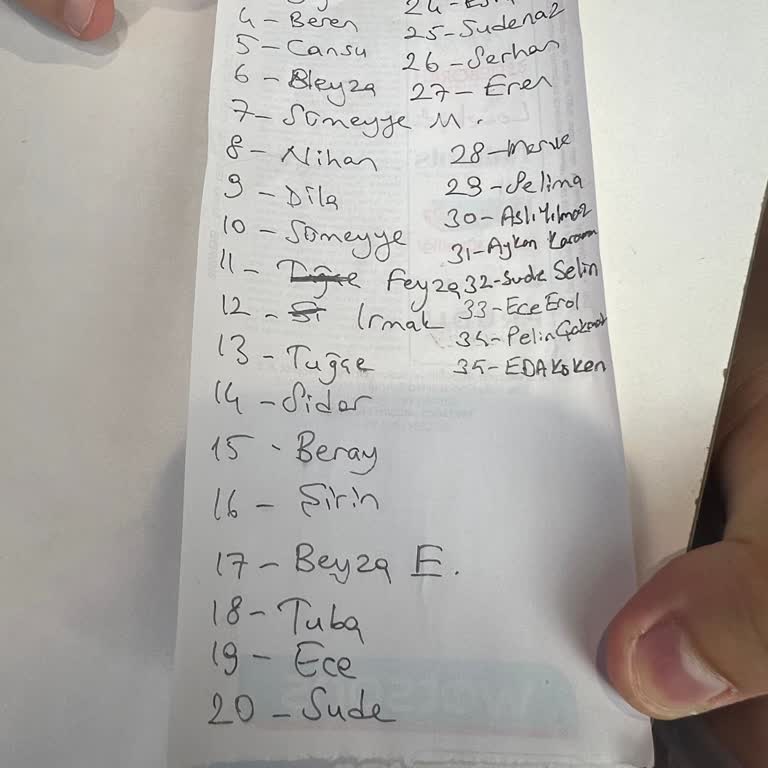 4 - Beren
5 - Cansu
6 - Beyza
7 - Sümeyye M.
8 - Nihan
9 - Dila
10 - Sümeyye
11 - Feyza
12 - Irmak
13 - Tuğçe
14 - Sidar
15 - Beray
16 - Şirin
17 - Beyza E.
18 - Tuba
19 - Ece
20 - Sude
24 -
25 - Sudenaz
26 - Serhan
27 - Eren
28 - Merve
29 - Selina
30 - Aslı Yılmaz
31 - Aykan
32 - Sude Selin
33 - Ece Erol
34 - Pelin
35 - EDA Köken
watsons